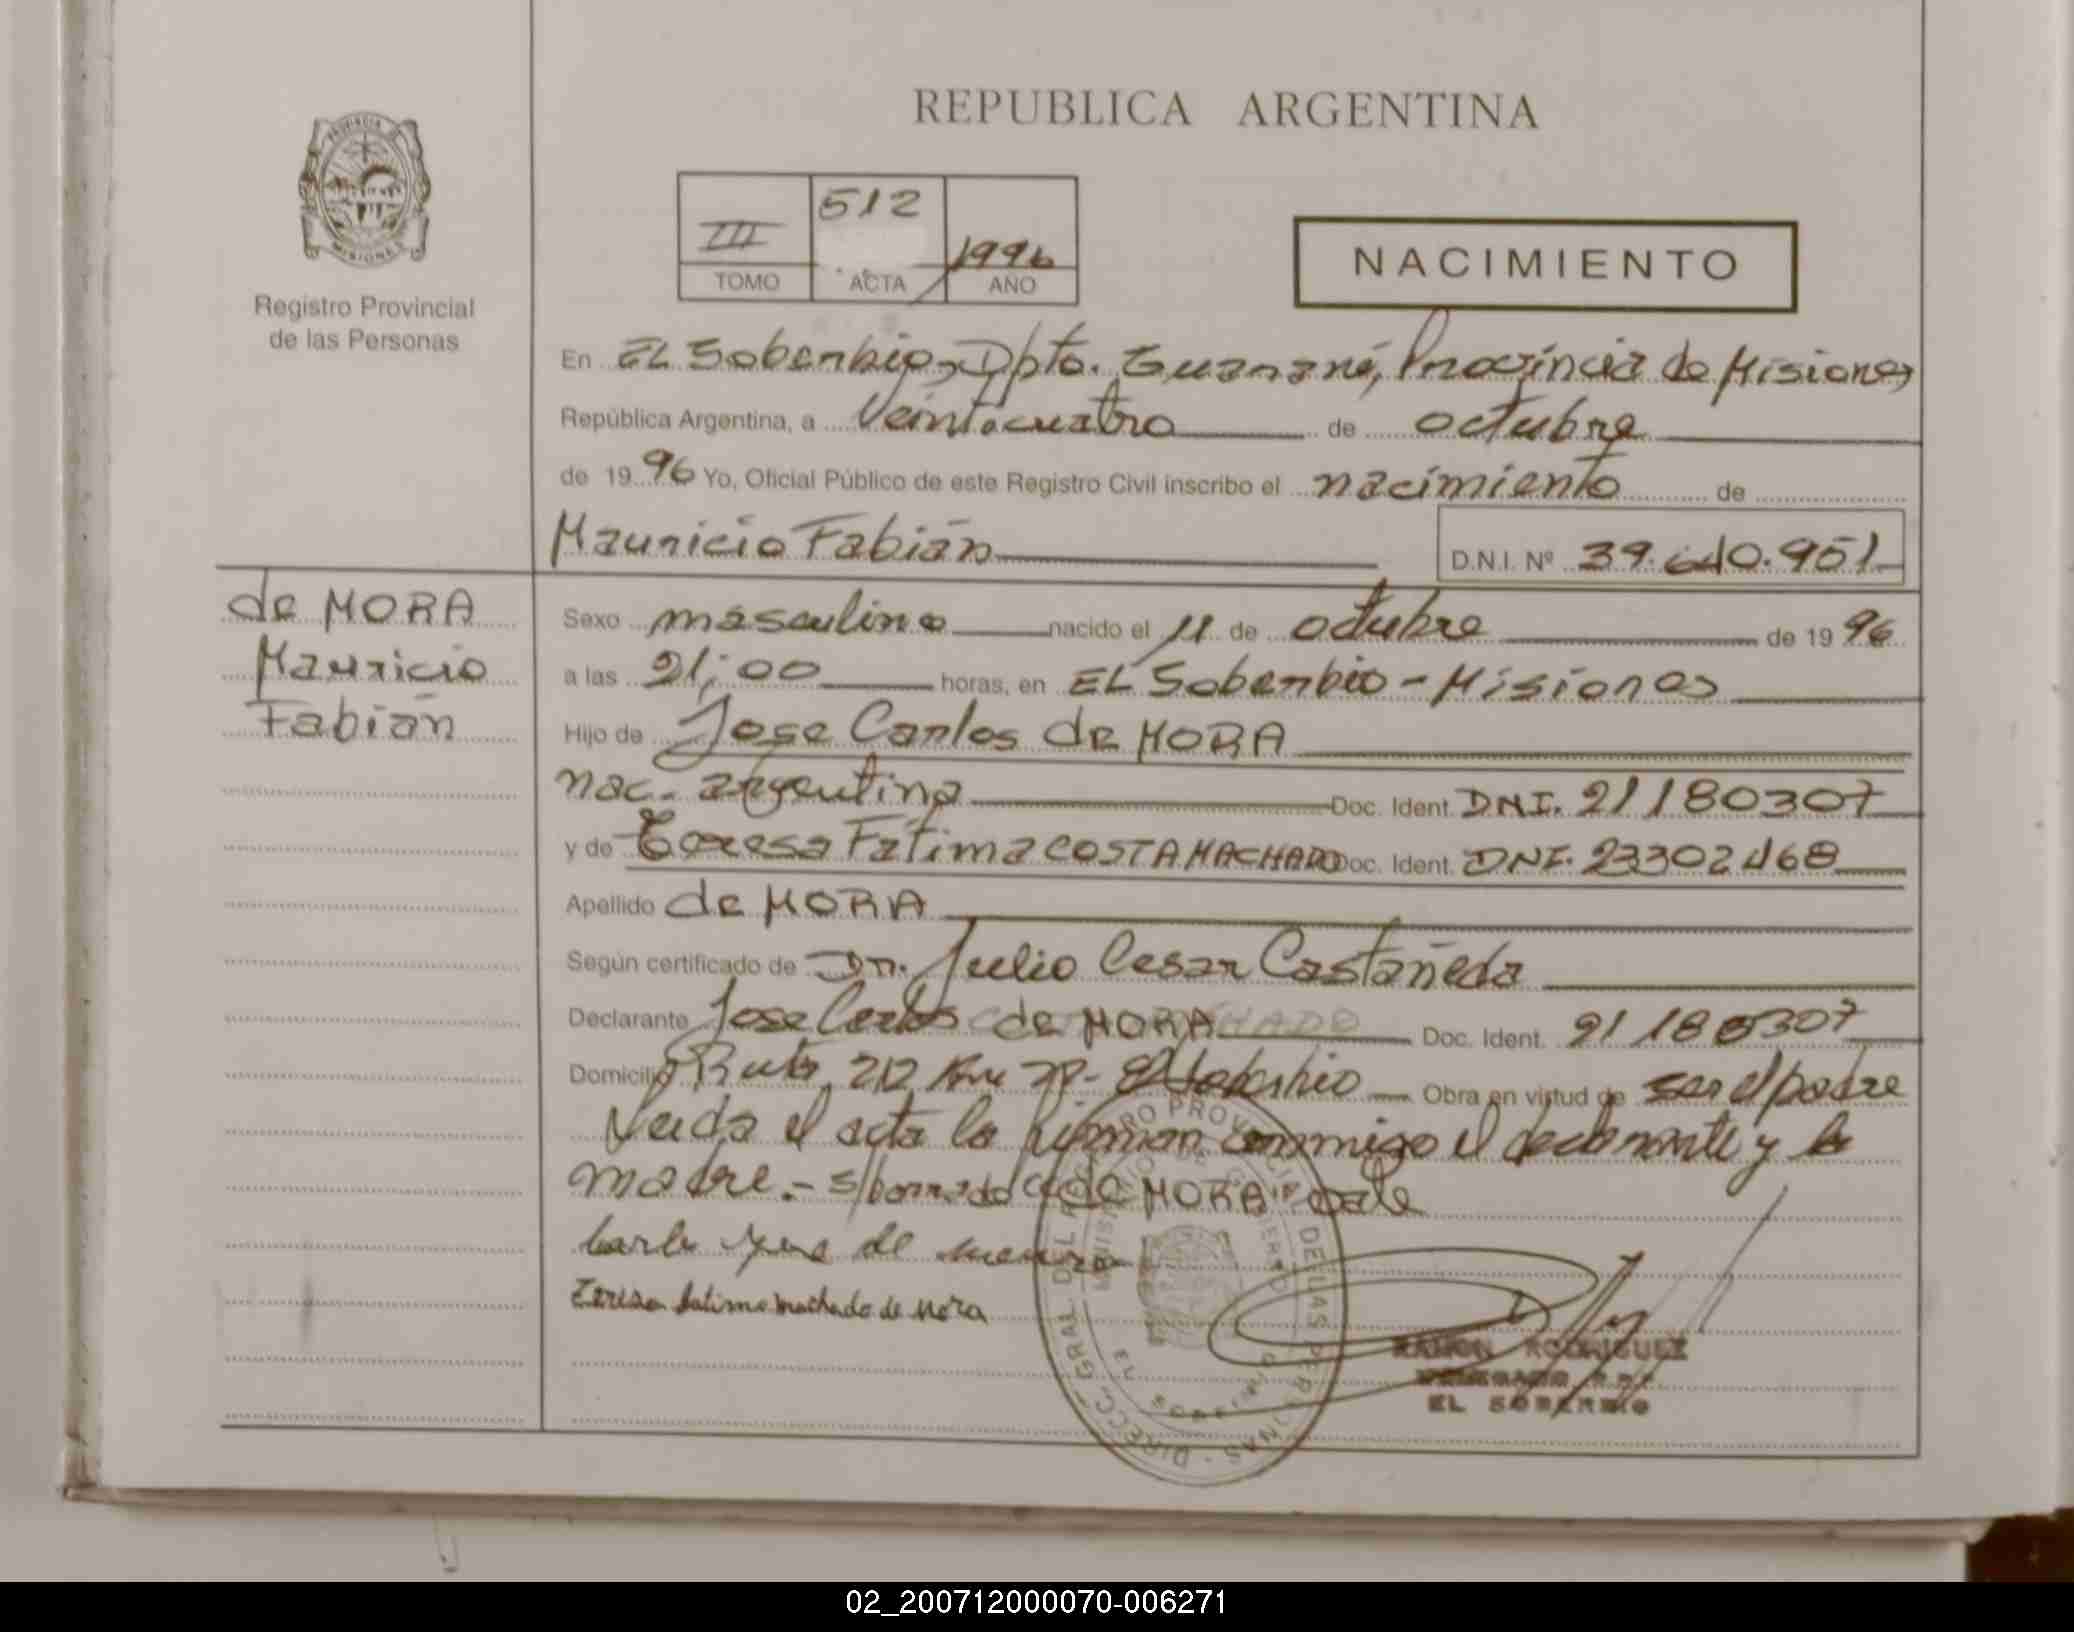 REPUBLICA ARGENTINA
PROVINCIA DE MISIONES
Registro Provincial
de las Personas
III 512 1996
TOMO ACTA AÑO
NACIMIENTO
En EL Soberbio, Dpto. Guaraní, Provincia de Misiones
República Argentina, a Veinticuatro de octubre
de 1996 Yo, Oficial Público de este Registro Civil inscribo el nacimiento de
Mauricio Fabián D.N.I. Nº 39.640.951
de MORA
Mauricio
Fabián
Sexo masculino nacido el 11 de octubre de 1996
a las 21:00 horas, en EL Soberbio - Misiones
Hijo de Jose Carlos de MORA
nac. argentina Doc. Ident. DNI. 21180307
y de Teresa Fatima COSTA MACHADO Doc. Ident. DNI. 23302468
Apellido de MORA
Según certificado de Dr. Julio Cesar Castañeda
Declarante Jose Carlos de MORA Doc. Ident. 21180307
Domicilio Ruta 212 Km - El Soberbio Obra en virtud de ser el padre
Leída el acta la firman conmigo el declarante y la
madre.- s/borrado "de MORA" vale
de
Teresa fatima machado de mora
DIRECC. GRAL. DEL REGISTRO PROVINCIAL DE LAS PERSONAS
MINISTERIO DE GOBIERNO
EL SOBERBIO
RAMON RODRIGUEZ
EL SOBERBIO
02_200712000070-006271